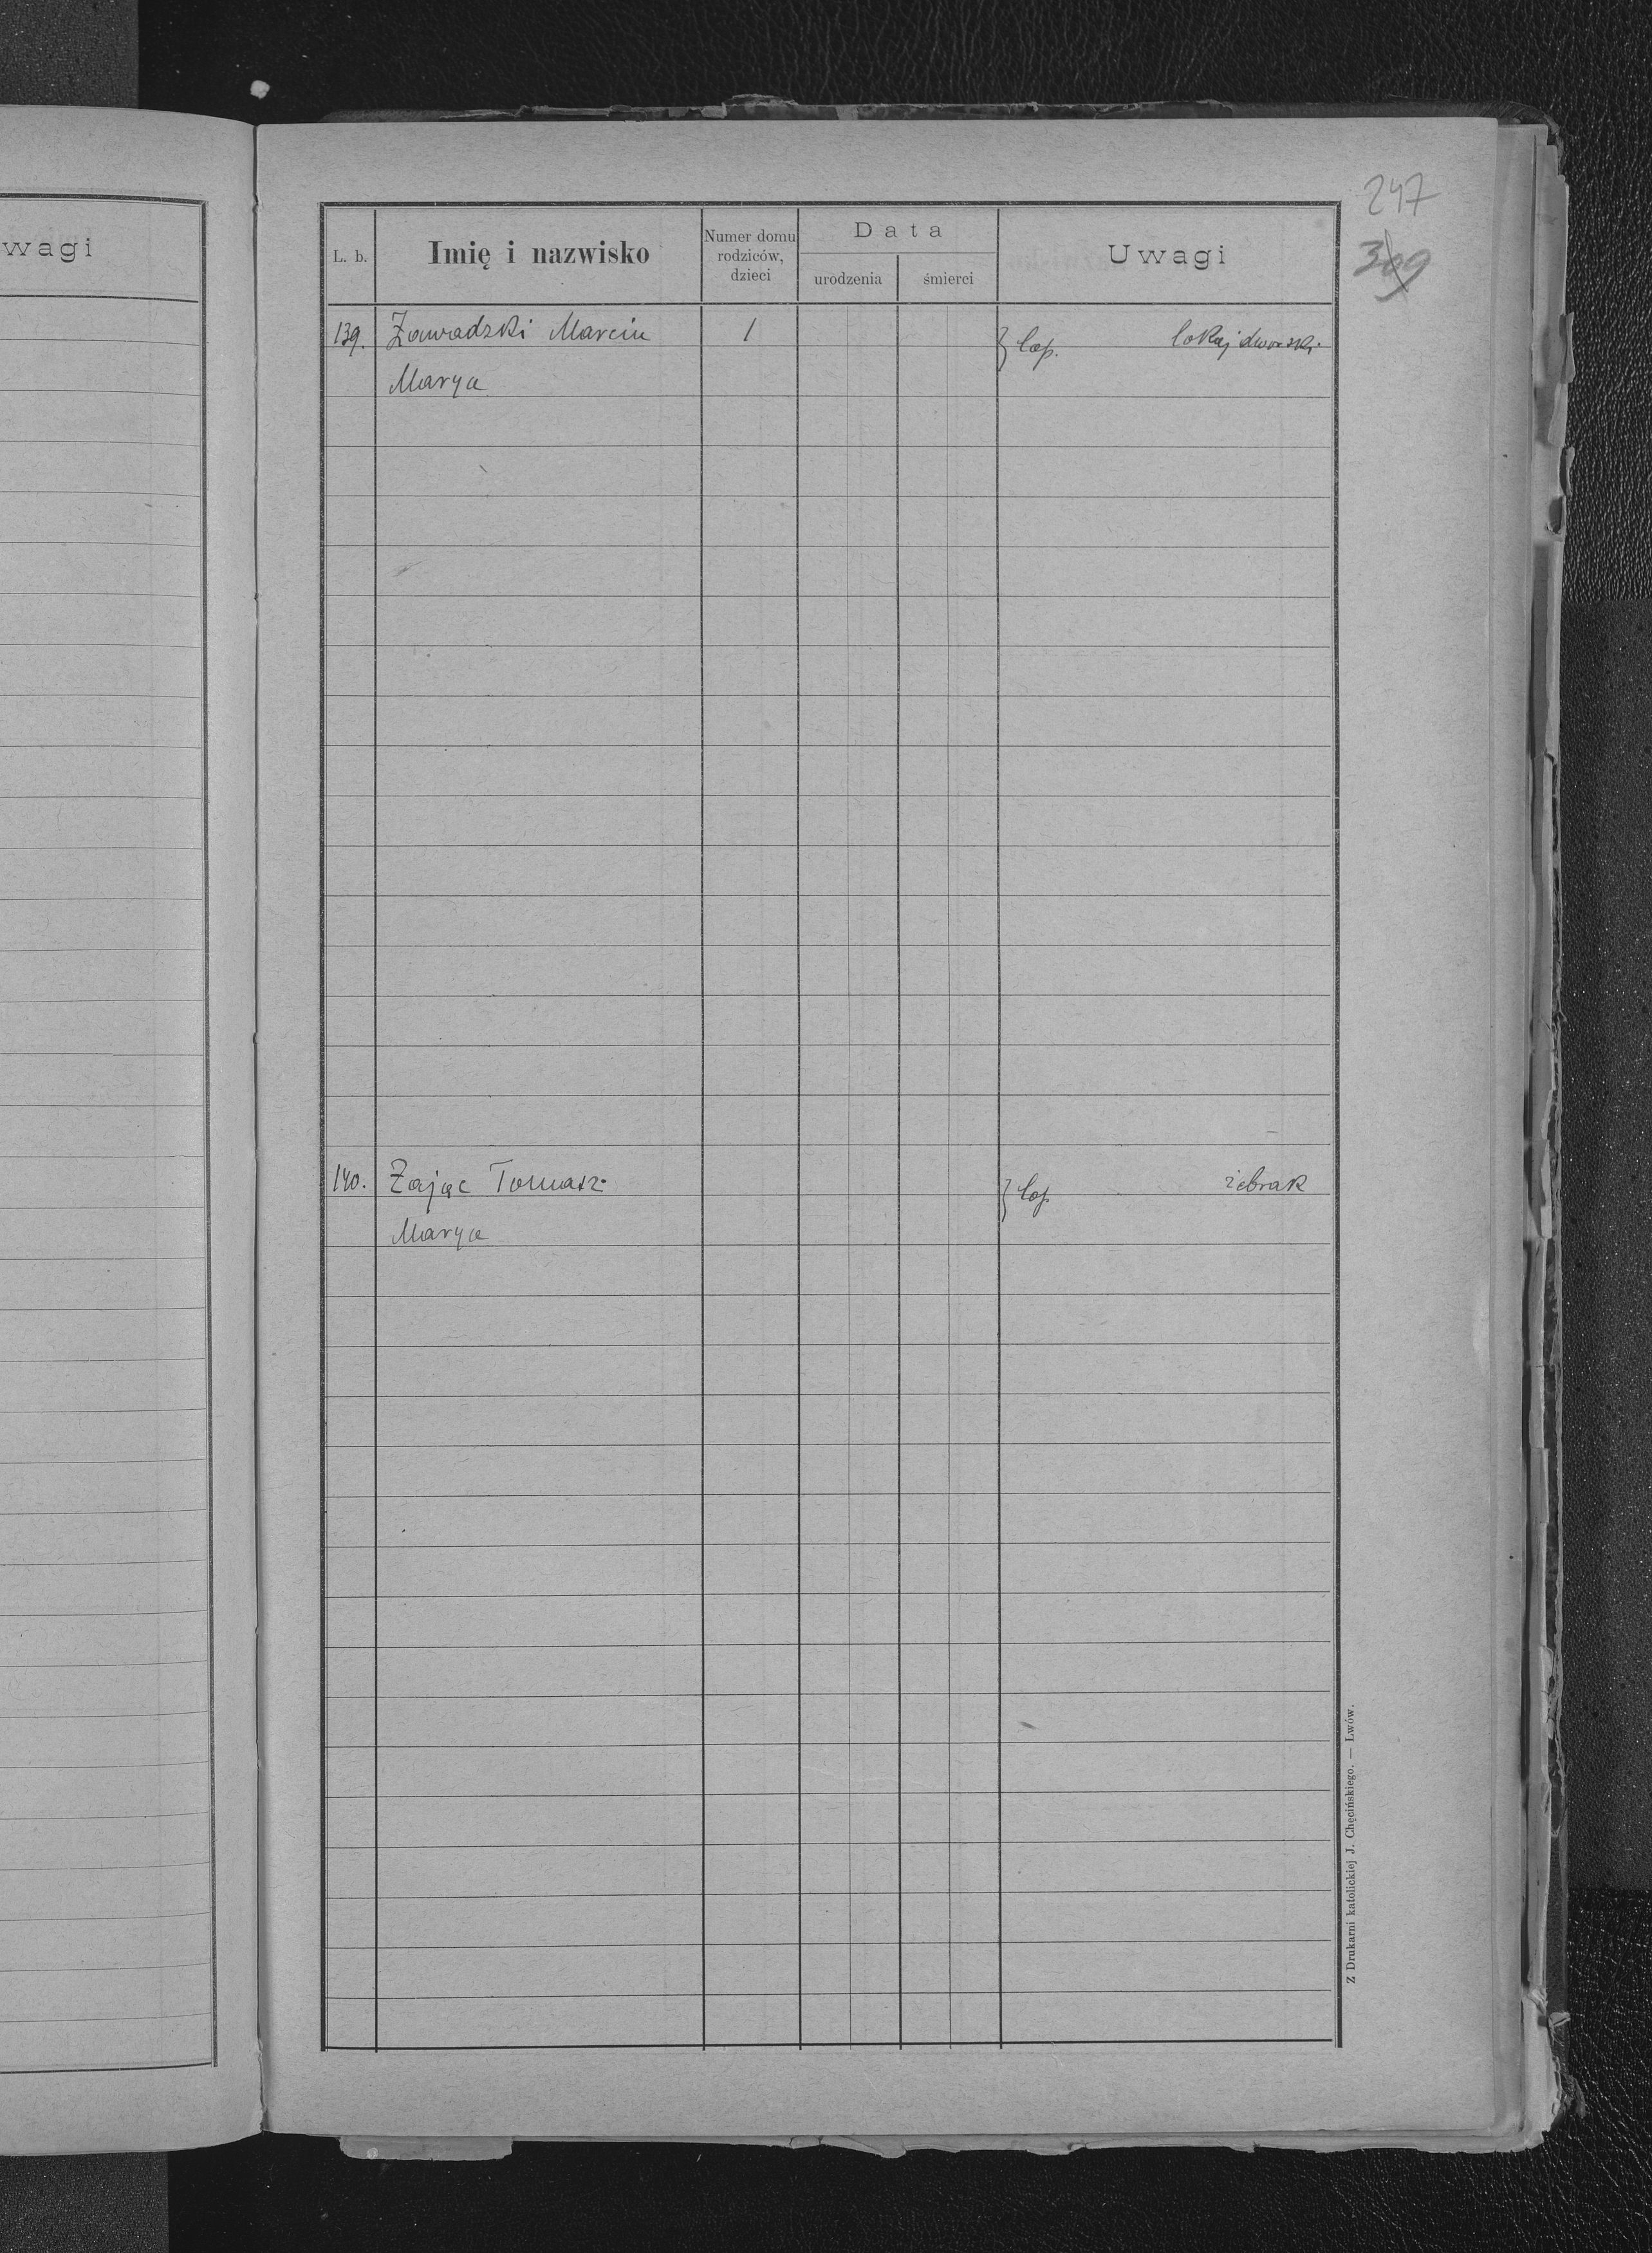 wagi
247
369
L. b.
Imię i nazwisko
Numer domu
rodziców,
dzieci
Data
urodzenia
śmierci
Uwagi
139. Zawadzki Marcin 1 } łac. lokaj dworski
Marya
140. Zając Tomasz } łac żebrak
Marya
Z Drukarni katolickiej J. Chęcińskiego. — Lwów.